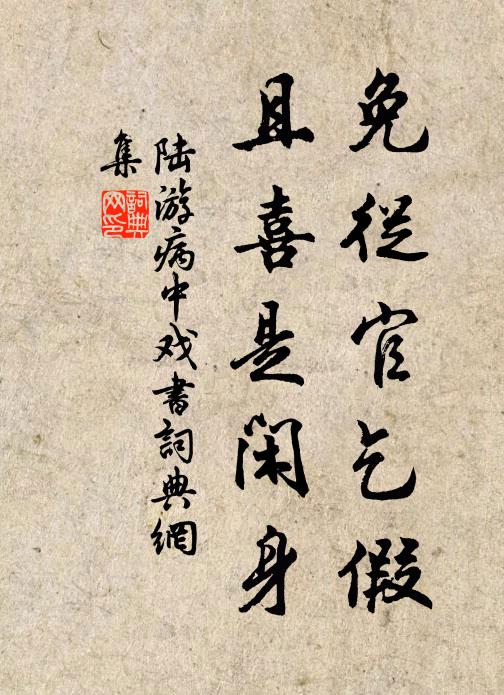 免從官乞假
且喜是閑身
陆游病中戏書詞典網
集
詞典
网印